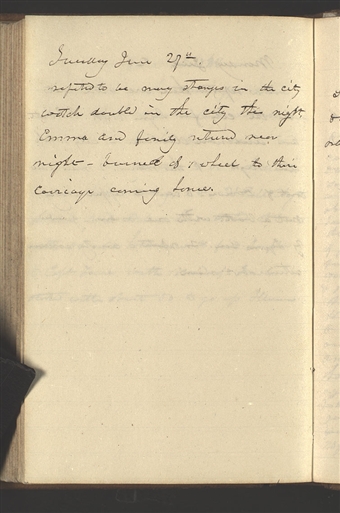 Tuesday June 27th.
reported to be many strangers in the city
watch double in the city this night
Emma and family returnd near
night - burned of 1 wheel to their
Carriage coming home.